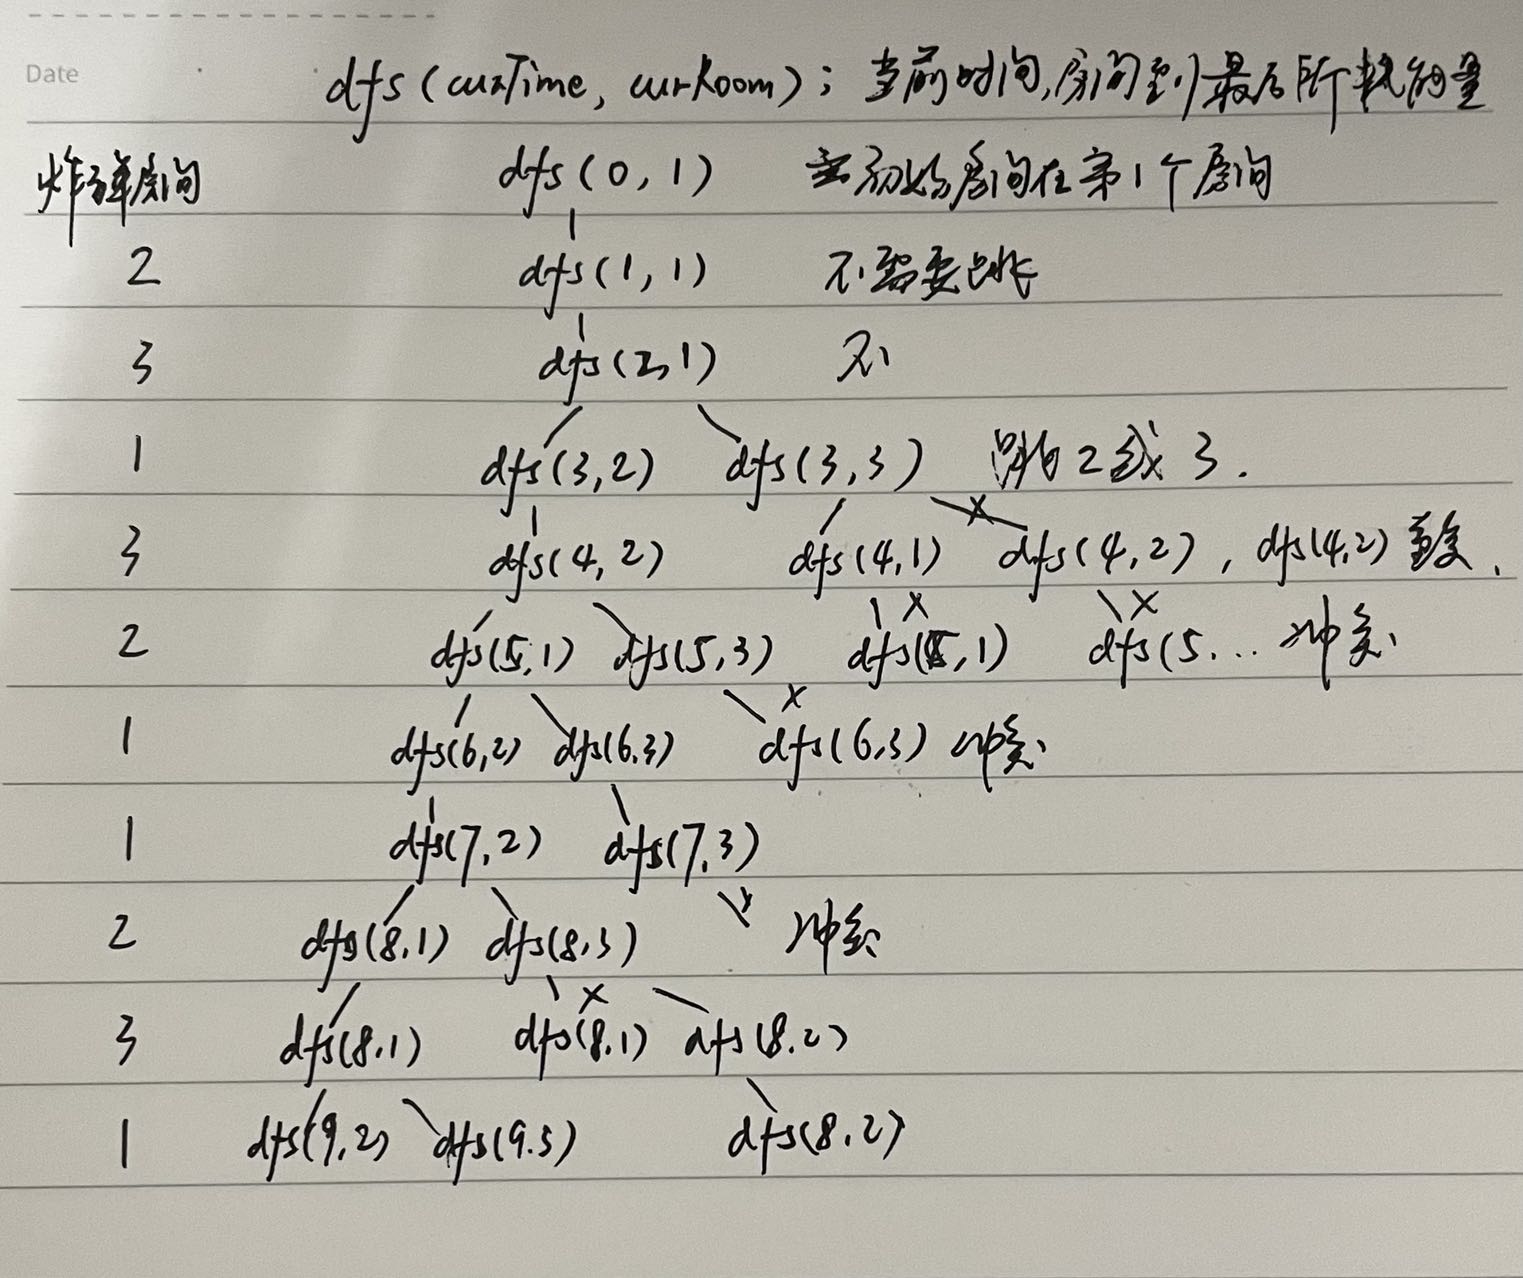 Date
dfs(curTime, curRoom): 当前时间,房间到最后所耗能量
炸弹房间 dfs(0,1) 初始房间在第1个房间
2 dfs(1,1) 不需要跳
3 dfs(2,1) 不
1 dfs(3,2) dfs(3,3) 跳2或3.
3 dfs(4,2) dfs(4,1) × dfs(4,2), dfs(4,2)重复.
2 dfs(5,1) dfs(5,3) × dfs(5,1) × dfs(5... 冲突.
1 dfs(6,2) dfs(6,3) × dfs(6,3) 冲突.
1 dfs(7,2) dfs(7,3)
2 dfs(8,1) dfs(8,3) × 冲突
3 dfs(8,1) × dfs(8,1) dfs(8,2)
1 dfs(9,2) dfs(9.3) dfs(8,2)